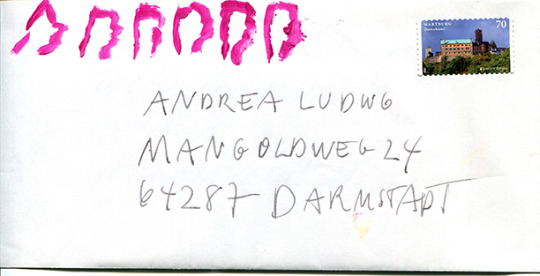 WARTBURG 70
Deutschland
ANDREA LUDWG
MANGOLDWEG 24
64287 DARMSTADT